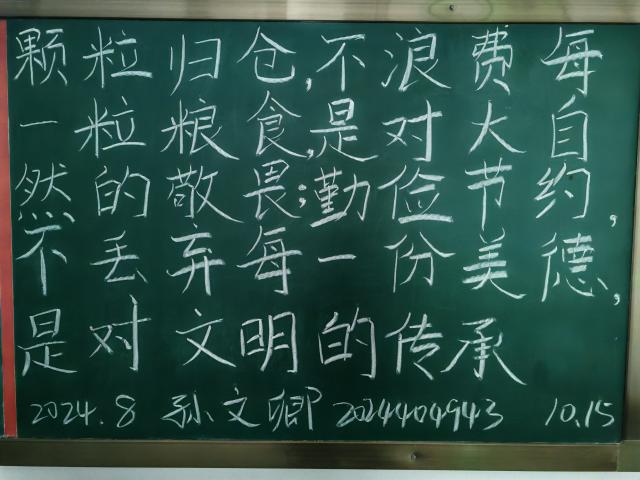 颗粒归仓,不浪费每
一粒粮食,是对大自
然的敬畏;勤俭节约,
不丢弃每一份美德,
是对文明的传承
2024.8 孙文卿 2024404943 10.15